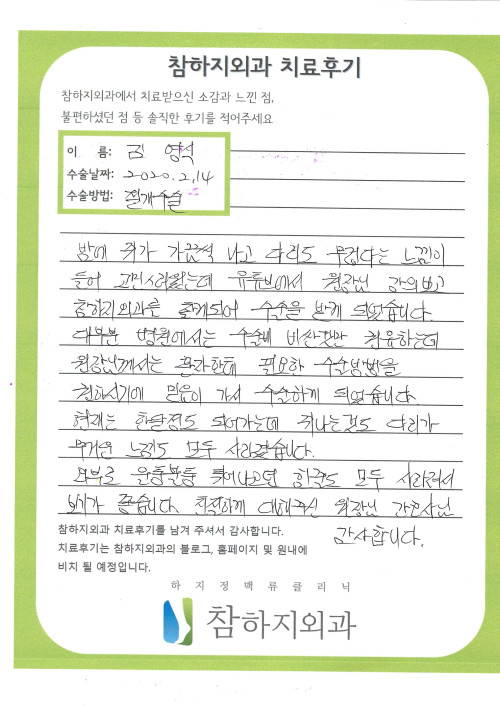 참하지외과 치료후기
참하지외과에서 치료받으신 소감과 느낀 점,
불편하셨던 점 등 솔직한 후기를 적어주세요
이 름: 김 영석
수술날짜: 2020.2.14
수술방법: 절개수술
밤에 쥐가 가끔씩 나고 다리도 무겁다는 느낌이
들어 고민스러웠는데 유튜브에서 원장님 강의보고
참하지외과를 알게되어 수술을 받게 되었습니다.
대부분 병원에서는 수술비 비싼것만 권유하는데
원장님께서는 환자한테 필요한 수술방법을
권하시기에 믿음이 가서 수술하게 되었습니다.
현재는 한달정도 되어가는데 쥐나는것도 다리가
무거운 느낌도 모두 사라졌습니다.
외부로 울퉁불퉁 튀어나오던 핏줄도 모두 사라져서
보기가 좋습니다. 친절하게 대해주신 원장님 간호사님
감사합니다.
참하지외과 치료후기를 남겨 주셔서 감사합니다.
치료후기는 참하지외과의 블로그, 홈페이지 및 원내에
비치 될 예정입니다.
하지정맥류클리닉
참하지외과